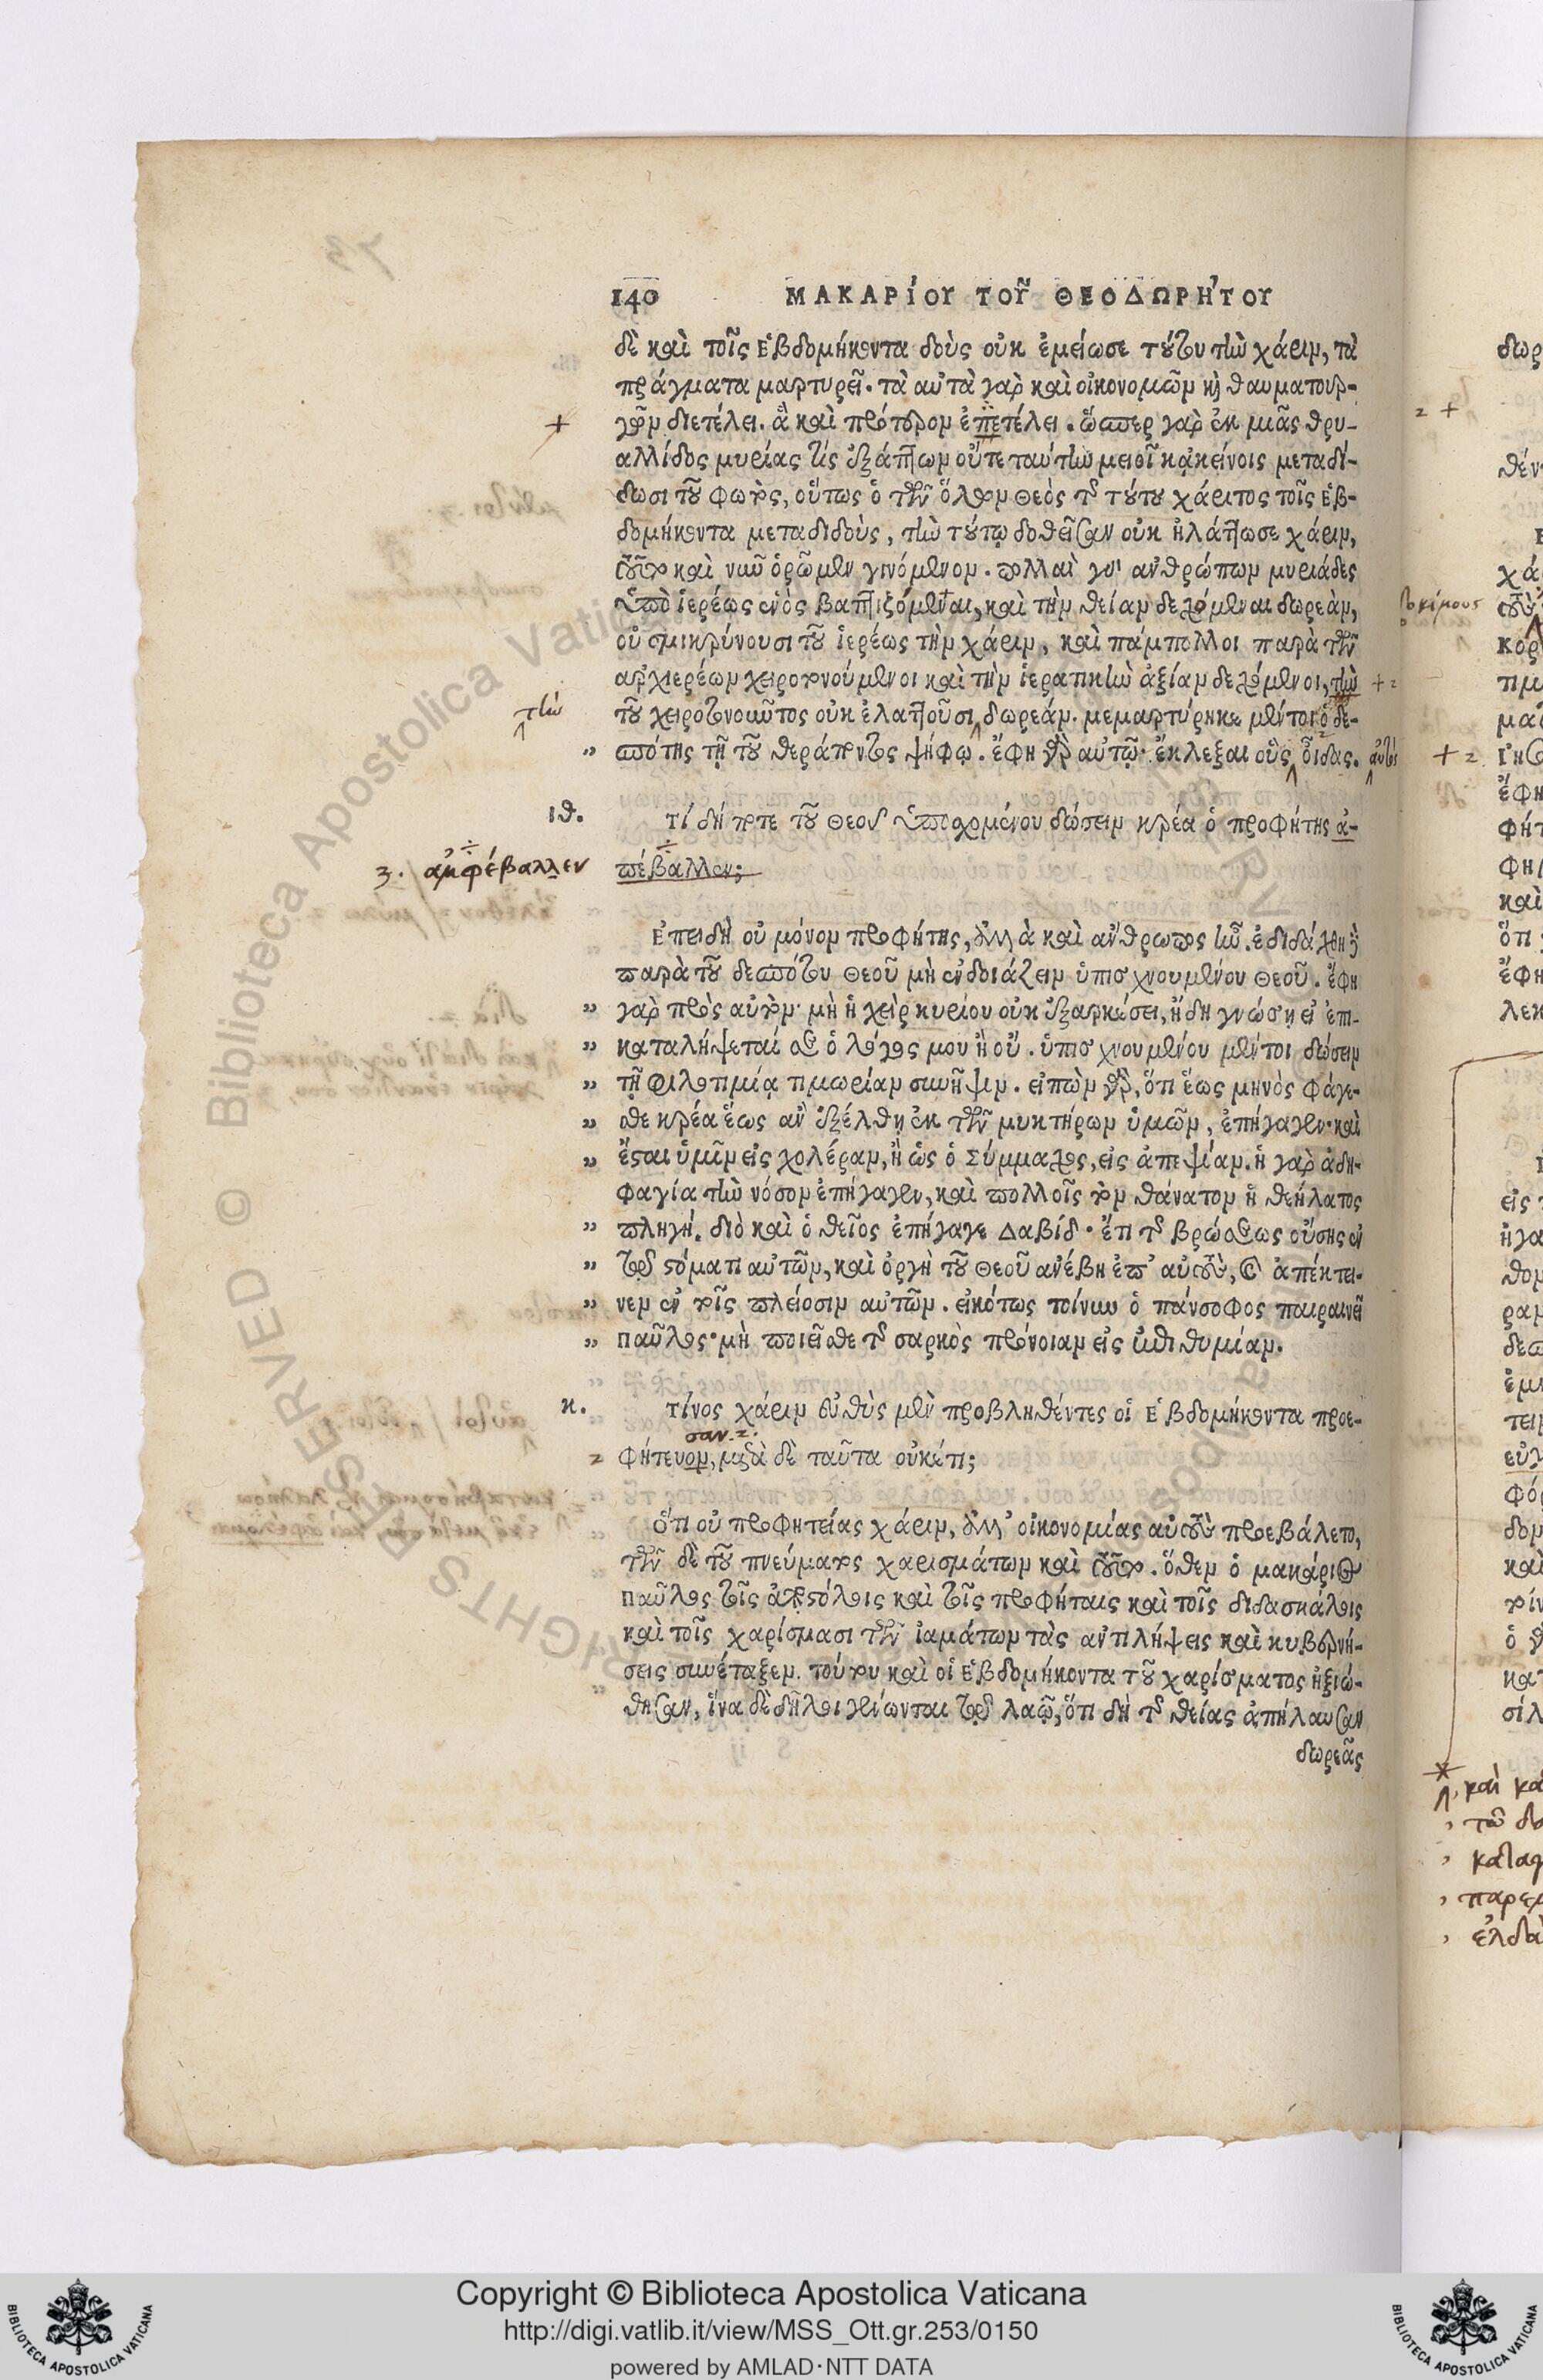 140 ΜΑΚΑΡΊΟΥ ΤΟΥ͂ ΘΕΟΔΩΡΉΤΟΥ
δὲ καὶ τοῖς Ἑβδομήκοντα δοὺς οὐκ ἐμείωσε τούτου τὴν χάριν, τὰ
πράγματα μαρτυρεῖ. τὰ αὐτὰ γὰρ καὶ οἰκονομῶν κὶ θαυματουρ-
+ γῶν διετέλει. ἃ καὶ πρότερον ἐπετέλει. ὥσπερ γὰρ ἐκ μιᾶς θρυ-
αλλίδος μυρίας τὶς ἐξάπτων οὔτε ταύτην μειοῖ κᾀκείνοις μεταδί-
δωσι τοῦ φωτός, οὕτως ὁ τῶν ὅλων Θεὸς τῆς τούτου χάριτος τοῖς Ἑβ-
δομήκοντα μεταδιδοὺς, τὴν τούτῳ δοθεῖσαν οὐκ ἠλάττωσε χάριν,
τοῦτο καὶ νῦν ὁρῶμεν γινόμενον. πολλαὶ γοῦν ἀνθρώπων μυριάδες
ὑπὸ ἱερέως ἑνὸς βαπτιζόμεναι, καὶ τὴν θείαν δεχόμεναι δωρεὰν,
οὐ σμικρύνουσι τοῦ ἱερέως τὴν χάριν, καὶ πάμπολλοι παρὰ τῶν
ἀρχιερέων χειροτονούμενοι καὶ τὴν ἱερατικὴν ἀξίαν δεχόμενοι, τὴν + 2
τὴν τοῦ χειροτονοῦντος οὐκ ἐλαττοῦσι δωρεάν. μεμαρτύρηκε μέντοι ὁ δε-
„ σπότης τῇ τοῦ θεράποντος ψήφῳ. ἔφη γὰρ αὐτῷ· ἔκλεξαι οὓς οἶδας. αὐτὸς
ιθ. Τί δή ποτε τοῦ Θεοῦ ὑποσχομένου δώσειν κρέα ὁ προφήτης ἀ-
3. ἀμφέβαλλεν πέβαλλεν;
Ἐπειδὴ οὐ μόνον προφήτης, ἀλλὰ καὶ ἄνθρωπος ἦν. ἐδιδάχθη δὲ
παρὰ τοῦ δεσπότου Θεοῦ μὴ ἐνδοιάζειν ὑπισχνουμένου Θεοῦ. ἔφη
„ γὰρ πρὸς αὐτόν· μὴ ἡ χεὶρ κυρίου οὐκ ἐξαρκέσει, ἤδη γνώσῃ εἰ ἐπι-
„ καταλήψεταί σε ὁ λόγος μου ἢ οὔ. ὑπισχνουμένου μέντοι δώσειν
„ τῇ φιλοτιμίᾳ τιμωρίαν συνῆψιν. εἰπὼν γὰρ, ὅτι ἕως μηνὸς φάγε-
„ σθε κρέα ἕως ἂν ἐξέλθῃ ἐκ τῶν μυκτήρων ὑμῶν, ἐπήγαγεν· καὶ
„ ἔσται ὑμῖν εἰς χολέραν, ἢ ὡς ὁ Σύμμαχος, εἰς ἀπεψίαν. ἡ γὰρ ἀδη-
φαγία τὴν νόσον ἐπήγαγεν, καὶ πολλοῖς τὸν θάνατον ἡ θεήλατος
„ πληγή. διὸ καὶ ὁ θεῖος ἐπήγαγε Δαβίδ· ἔτι τῆς βρώσεως οὔσης ἐν
„ τῷ στόματι αὐτῶν, καὶ ὀργὴ τοῦ Θεοῦ ἀνέβη ἐπ’ αὐτοὺς, καὶ ἀπέκτει-
„ νεν ἐν τοῖς πλείοσιν αὐτῶν. εἰκότως τοίνυν ὁ πάνσοφος παιραινεῖ
„ Παῦλος· μὴ ποιεῖσθε τῆς σαρκὸς πρόνοιαν εἰς ἐπιθυμίαν.
κ. Τίνος χάριν εὐθὺς μὲν προβληθέντες οἱ Ἑβδομήκοντα προε-
σαν. 2.
2 φήτευον, μετὰ δὲ ταῦτα οὐκέτι;
Ὅτι οὐ προφητείας χάριν, ἀλλ’ οἰκονομίας αὐτοὺς προεβάλετο,
τῶν δὲ τοῦ πνεύματος χαρισμάτων καὶ τοῦτο. ὅθεν ὁ μακάριος
Παῦλος τοῖς ἀποστόλοις καὶ τοῖς προφήταις καὶ τοῖς διδασκάλοις
καὶ τοῖς χαρίσμασι τῶν ἰαμάτων τὰς ἀντιλήψεις καὶ κυβερνή-
σεις συνέταξεν. τούτου καὶ οἱ Ἑβδομήκοντα τοῦ χαρίσματος ἠξιώ-
θησαν, ἵνα δὲ δῆλοι γένωνται τῷ λαῷ, ὅτι δὴ τῆς θείας ἀπήλαυσαν
δωρεᾶς
Copyright © Biblioteca Apostolica Vaticana
http://digi.vatlib.it/view/MSS_Ott.gr.253/0150
powered by AMLAD·NTT DATA
BIBLIOTECA APOSTOLICA VATICANA
BIBLIOTECA APOSTOLICA VATICANA